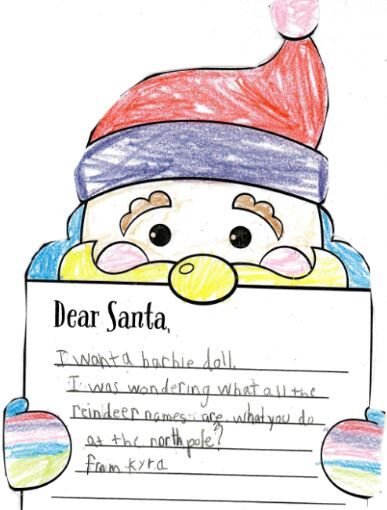 Dear Santa,
I want a barbie doll.
I was wondering what all the
reindeer names are. what you do
at the north pole?
from kyra